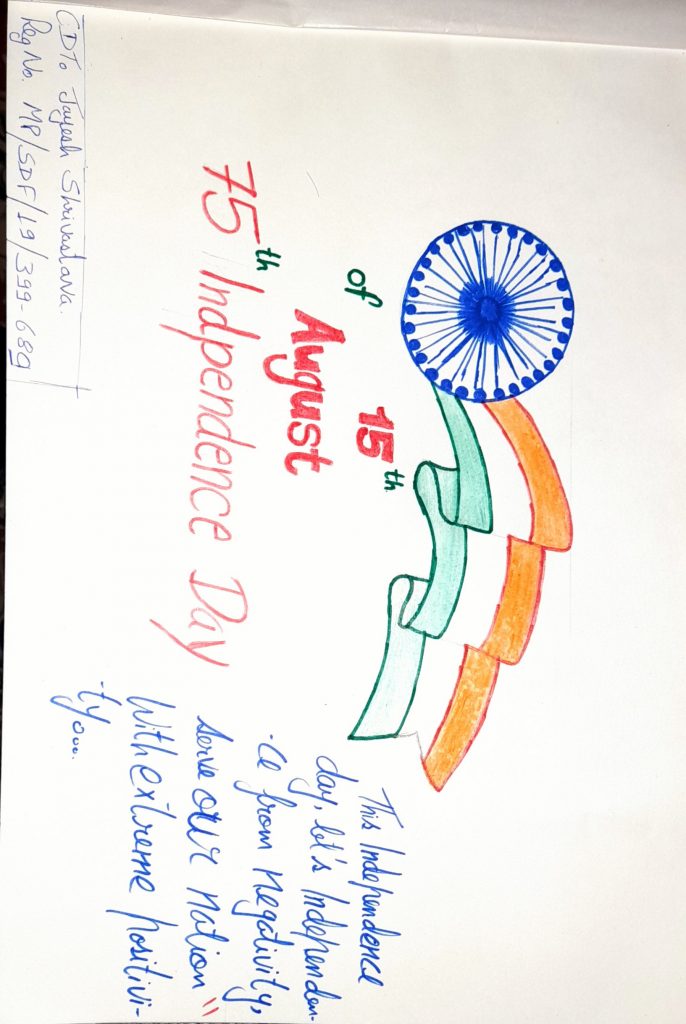 15th
of August
75th Indpendence Day
This Independence
day, let's Independen-
-ce from negativity,
serve our nation"
With extreme positivi-
-ty...
CDTo Jayesh Shrivastava.
Reg No. MP/SDF/19/399-689